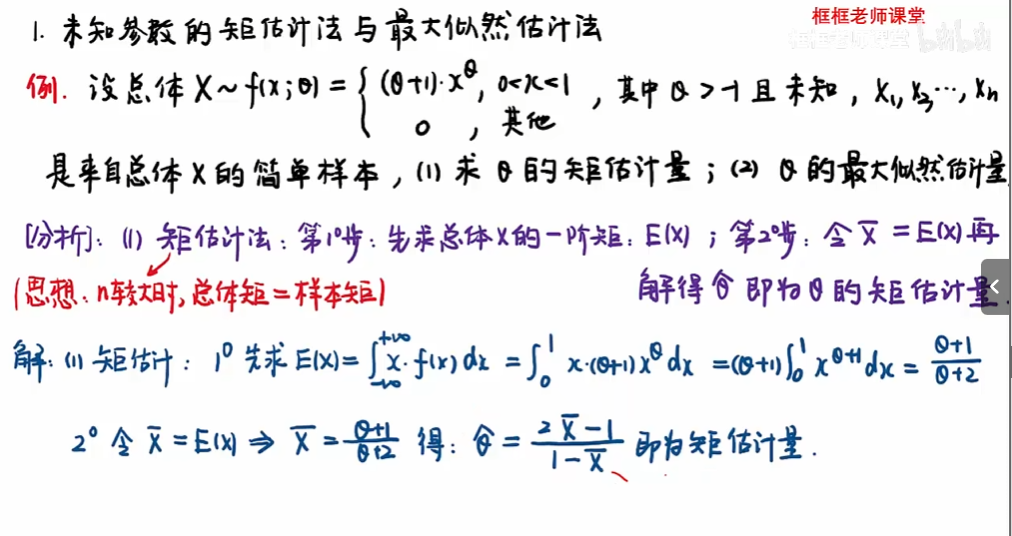 框框老师课堂
框框老师课堂 bilibili
1. 未知参数的矩估计法与最大似然估计法
例. 设总体 X~f(x;θ)={(θ+1)·x^θ, 0<x<1 , 其中 θ>-1 且未知, X₁, X₂, …, Xn
0 , 其他
是来自总体 X 的简单样本, (1) 求 θ 的矩估计量; (2) θ 的最大似然估计量
[分析]: (1) 矩估计法: 第1°步: 先求总体X的一阶矩: E(X); 第2°步: 令 X̄ = E(X) 再
(思想: n较大时, 总体矩=样本矩) 解得 θ̂ 即为 θ 的矩估计量.
解: (1) 矩估计: 1° 先求 E(X)=∫_{-∞}^{+∞} x·f(x)dx = ∫₀¹ x·(θ+1)x^θ dx =(θ+1)∫₀¹ x^{θ+1}dx = (θ+1)/(θ+2)
2° 令 X̄ = E(X) ⇒ X̄ = (θ+1)/(θ+2) 得: θ̂ = (2X̄-1)/(1-X̄) 即为矩估计量.